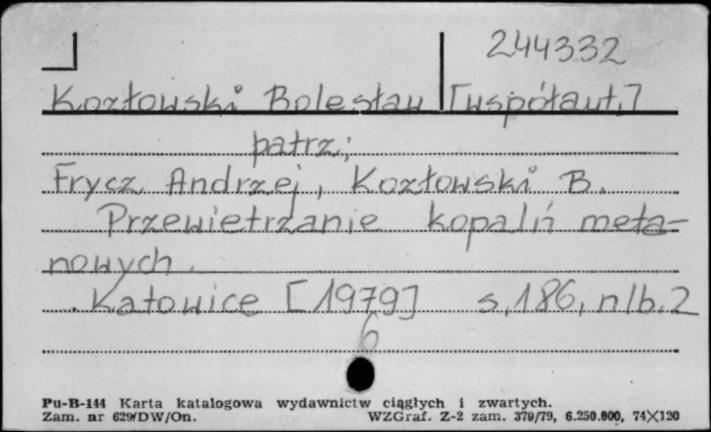 244332
Kozłowski Bolesław [współaut.]
patrz:
Frycz Andrzej, Kozłowski B.
Przewietrzanie kopalń meta-
nowych.
Katowice [1979] s. 186, nlb. 2
6
Pu-B-144 Karta katalogowa wydawnictw ciągłych i zwartych.
Zam. nr 629/DW/On. WZGraf. Z-2 zam. 379/79, 6.250.000, 74×120